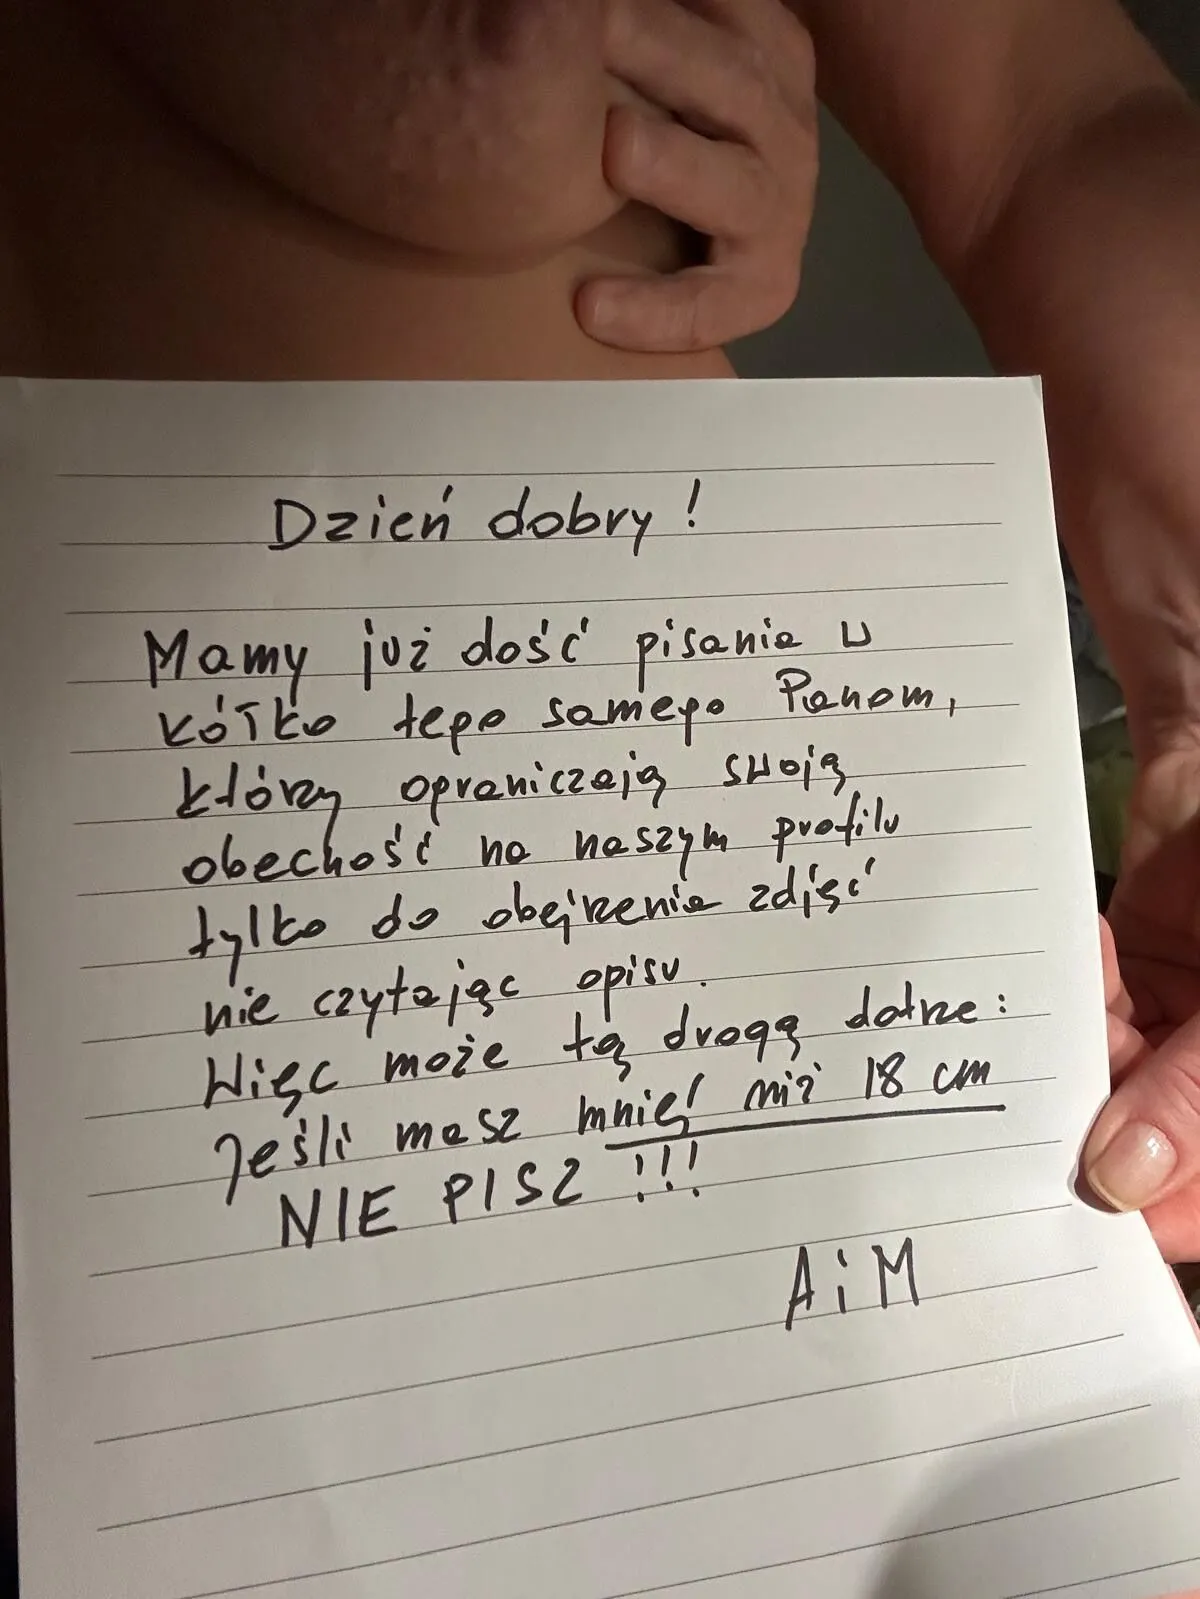 Dzień dobry!
Mamy już dość pisania w
kółko tego samego Panom,
którzy ograniczają swoją
obecność na naszym profilu
tylko do obejrzenia zdjęć
nie czytając opisu.
Więc może tą drogą dotrze:
Jeśli masz mniej niż 18 cm
NIE PISZ !!!
A i M